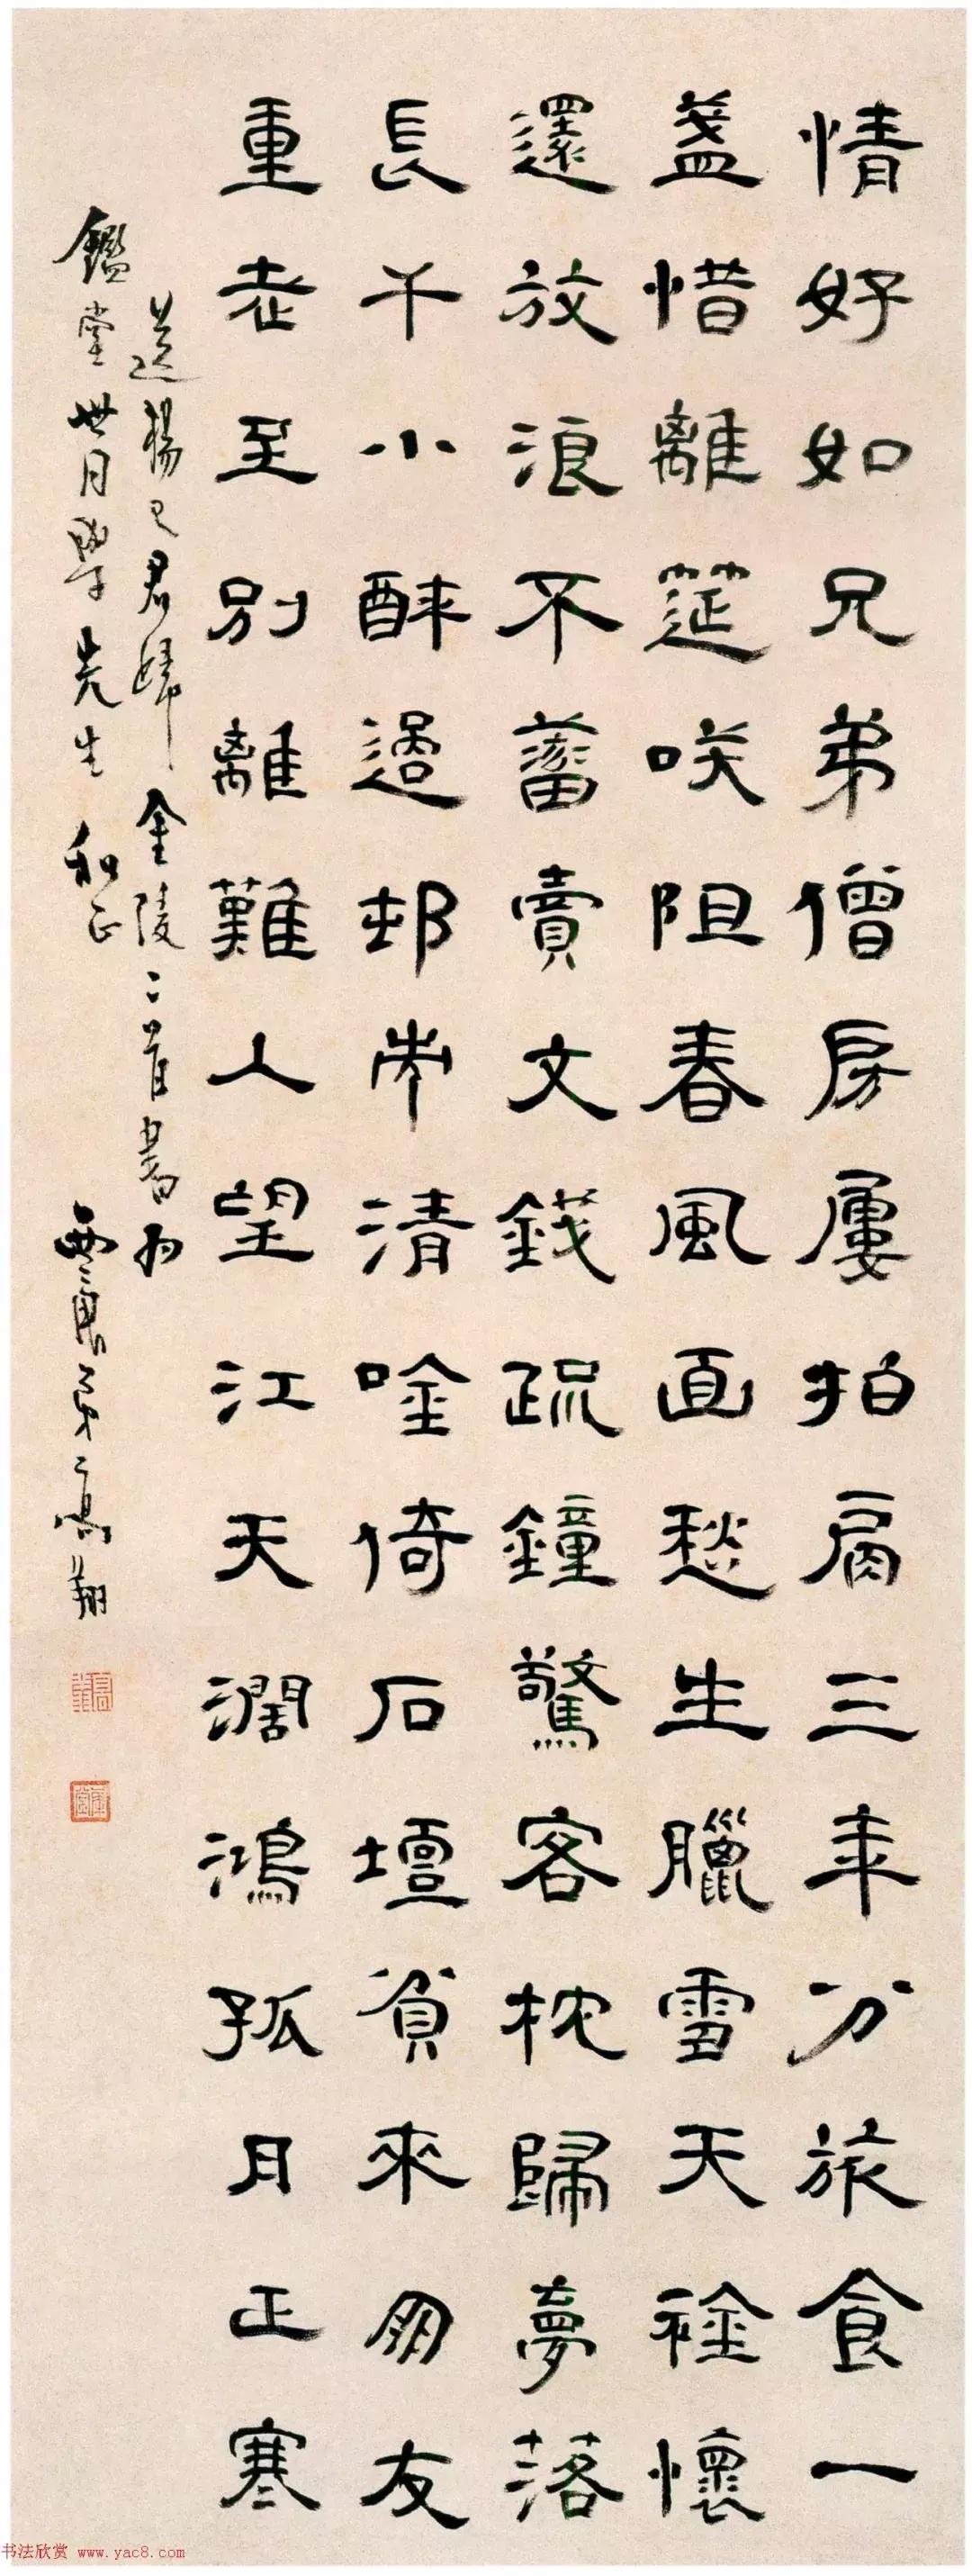 情好如兄弟僧房屢拍肩三年分旅食一
盞惜離筵咲阻春風面愁生臘雪天襟懷
還放浪不蓄賣文錢疏鐘驚客枕歸夢落
長干小醉過邨市清唫倚石壇貧來朋友
重老至別離難人望江天濶鴻孤月正寒
送楊已君歸金陵二首書為
鑑堂世同學先生和正
西唐弟高翔
書法欣赏 www.yac8.com